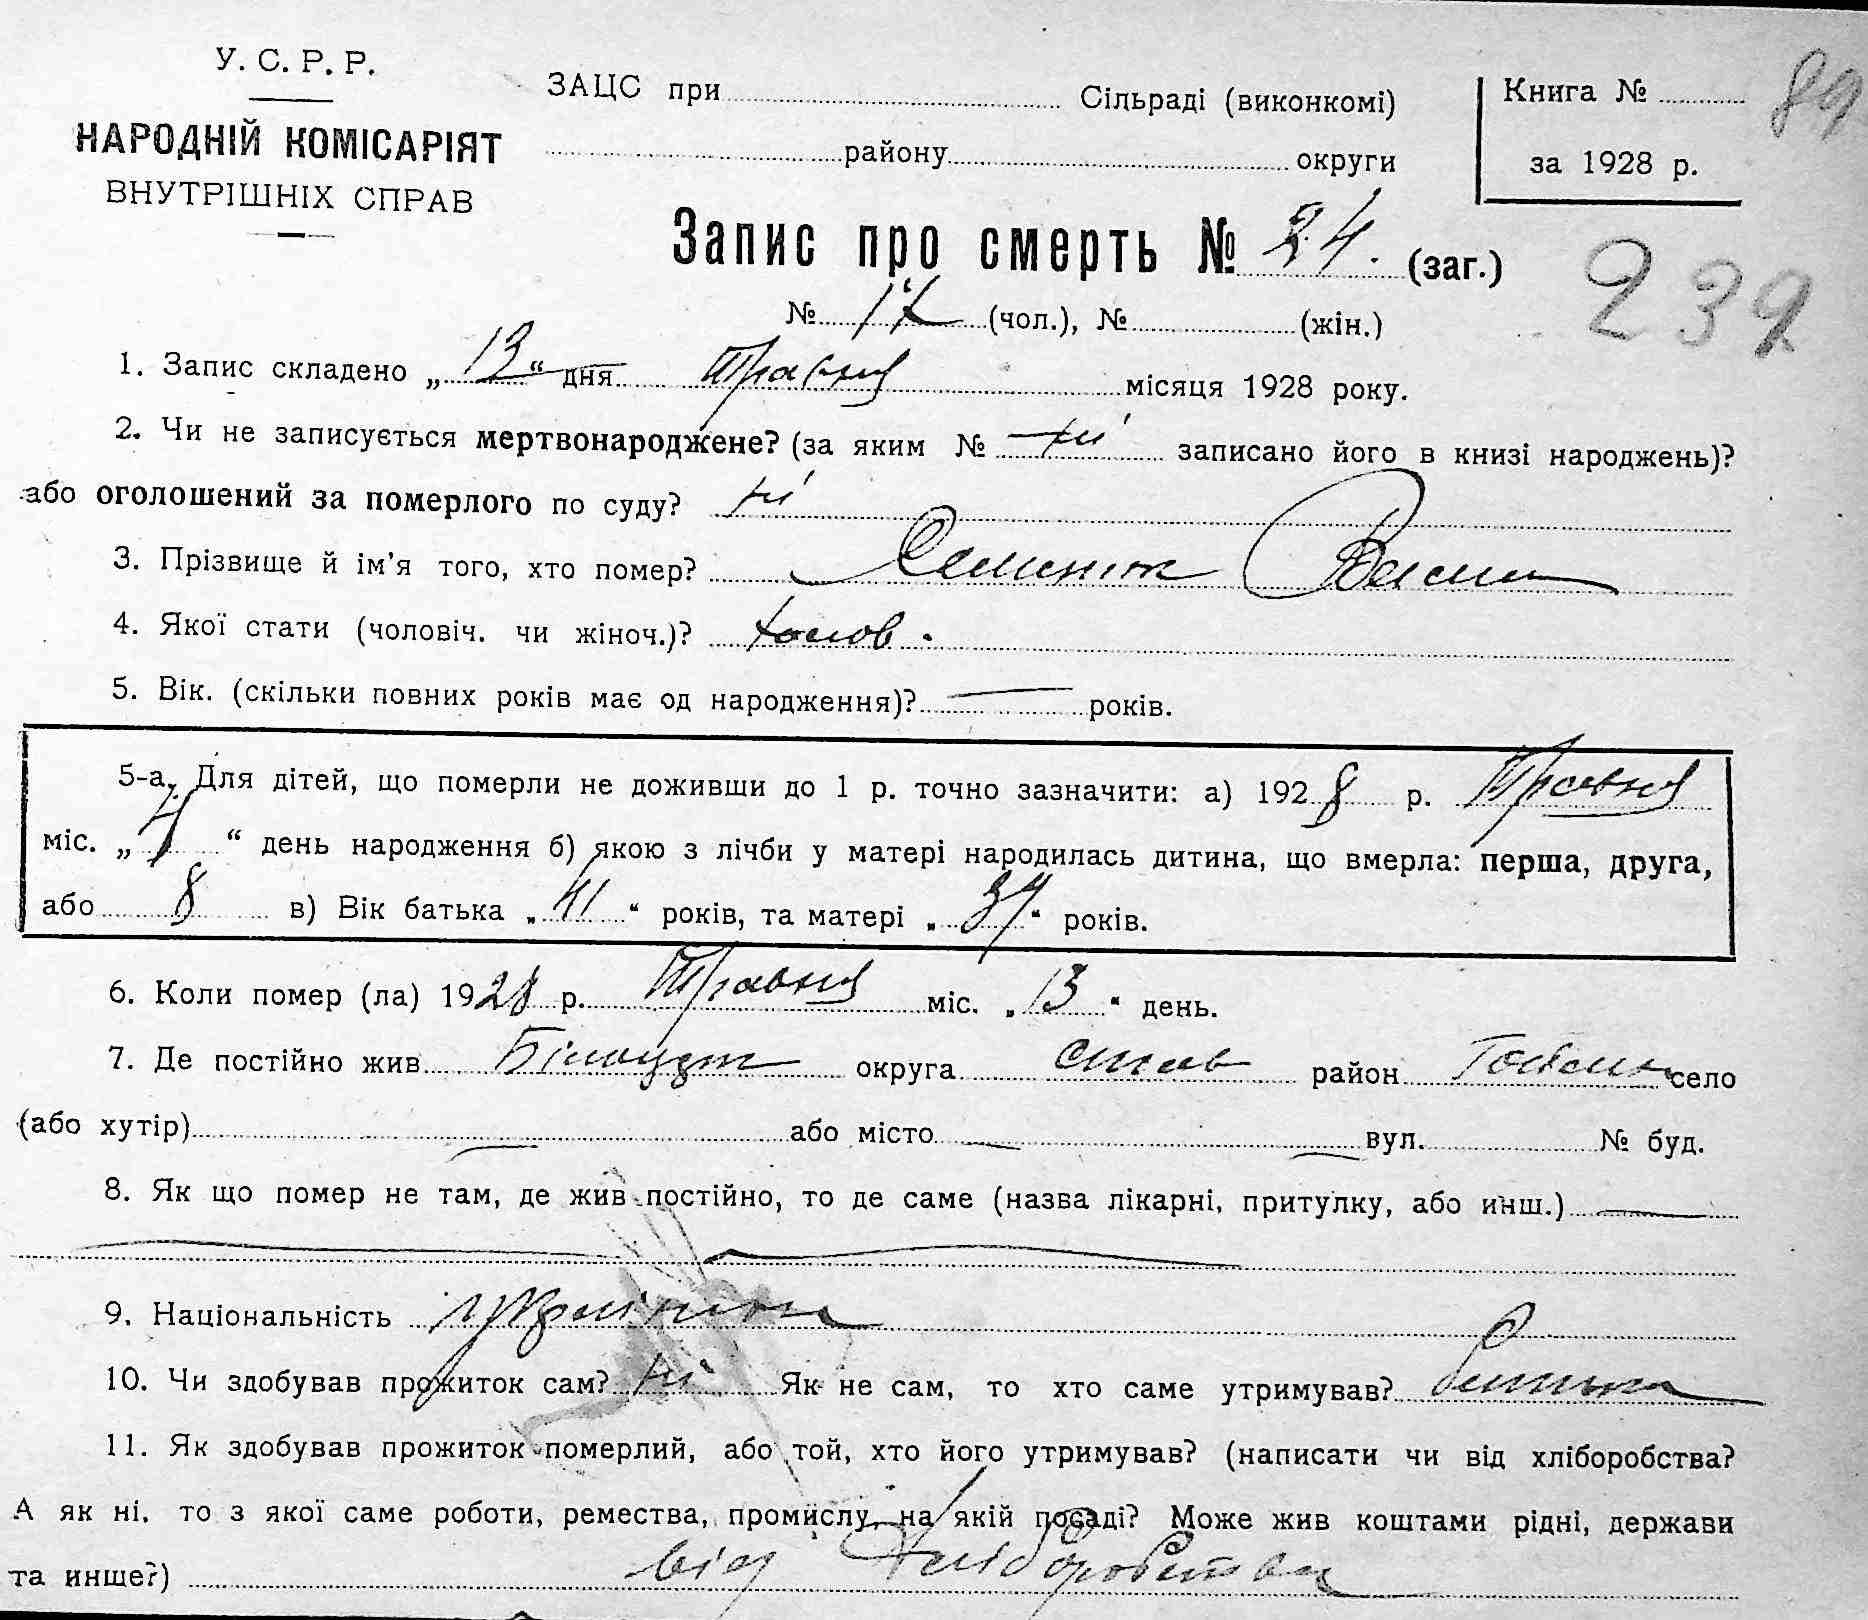 89
У. С. Р. Р.
НАРОДНІЙ КОМІСАРІЯТ
ВНУТРІШНІХ СПРАВ
ЗАЦС при Сільраді (виконкомі)
району округи
Книга №
за 1928 р.
Запис про смерть № 24. (заг.)
№ 17 (чол.), № (жін.)
239
1. Запис складено „13“ дня Травня місяця 1928 року.
2. Чи не записується мертвонароджене? (за яким № ні записано його в книзі народжень)?
або оголошений за померлого по суду? ні
3. Прізвище й ім'я того, хто помер?
4. Якої стати (чоловіч. чи жіноч.)? чолов.
5. Вік. (скільки повних років має од народження)? — років.
5-а. Для дітей, що померли не доживши до 1 р. точно зазначити: а) 1928 р. Травня
міс. „7“ день народження б) якою з лічби у матері народилась дитина, що вмерла: перша, друга,
або 8 в) Вік батька „41“ років, та матері „37“ років.
6. Коли помер (ла) 1928 р. Травня міс. „13“ день.
7. Де постійно жив округа район село
(або хутір) — або місто — вул. — № буд.
8. Як що помер не там, де жив постійно, то де саме (назва лікарні, притулку, або инш.) —
9. Національність
10. Чи здобував прожиток сам? ні Як не сам, то хто саме утримував?
11. Як здобував прожиток померлий, або той, хто його утримував? (написати чи від хліборобства?
А як ні, то з якої саме роботи, ремества, промислу, на якій посаді? Може жив коштами рідні, держави
та инше?) від хліборобства